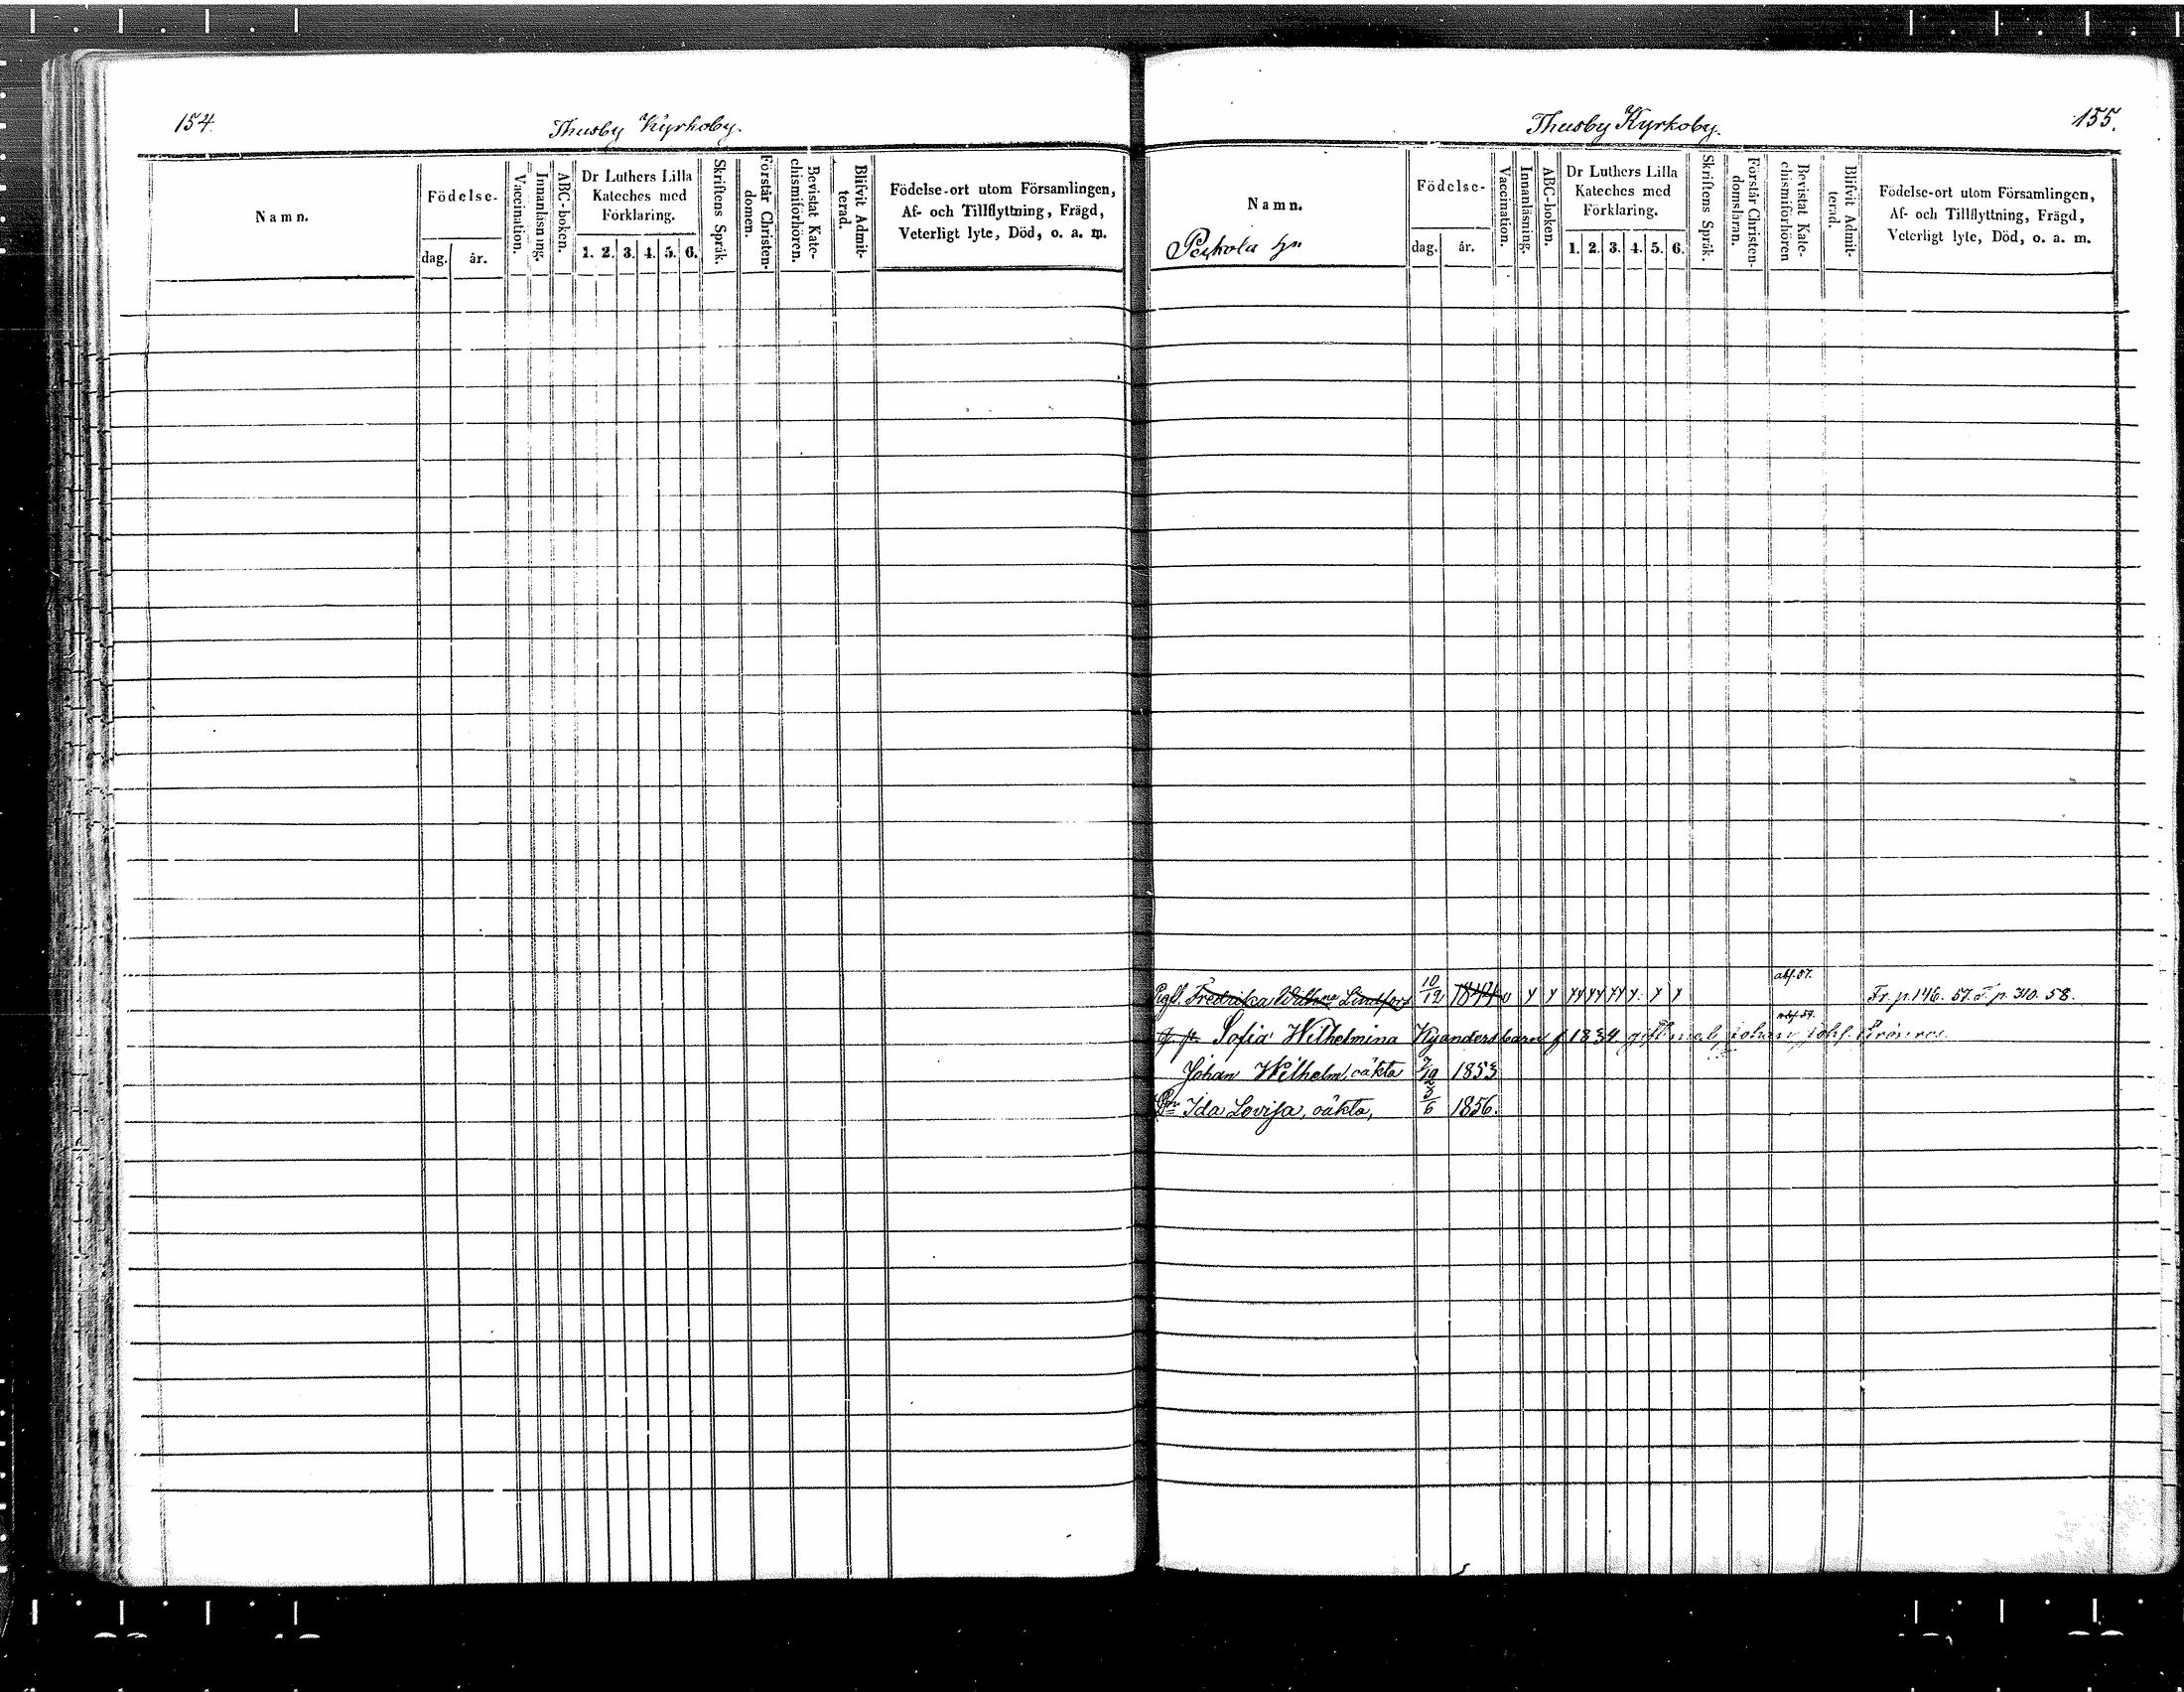 154.
Thusby Kyrkoby.
Namn.
Födelse-
dag. år.
Vaccination.
Innanläsning.
ABC-boken.
Dr Luthers Lilla
Kateches med
Förklaring.
1. 2. 3. 4. 5. 6.
Skriftens Språk.
Förstår Christen-
domen.
Bevistat Kate-
chismiförhören.
Blifvit Admit-
terad.
Födelse-ort utom Församlingen,
Af- och Tillflyttning, Frägd,
Veterligt lyte, Död, o. a. m.
Thusby Kyrkoby.
155.
Namn.
Födelse-
dag. år.
Vaccination.
Innanläsning.
ABC-boken.
Dr Luthers Lilla
Kateches med
Förklaring.
1. 2. 3. 4. 5. 6.
Skriftens Språk.
Förstår Christen-
domsläran.
Bevistat Kate-
chismiförhören
Blifvit Admit-
terad.
Födelse-ort utom Församlingen,
Af- och Tillflyttning, Frägd,
Veterligt lyte, Död, o. a. m.
abs. 57.
Fredrika Wilhna Lindfors 10/12 Fr. p. 146. 57. T. p. 310. 58.
Sofia Wilhelmina f 1834 gift med Johan
Johan Wilhelm, oäkta 1853
Ida Lovisa, oäkta, 3/6 1856.